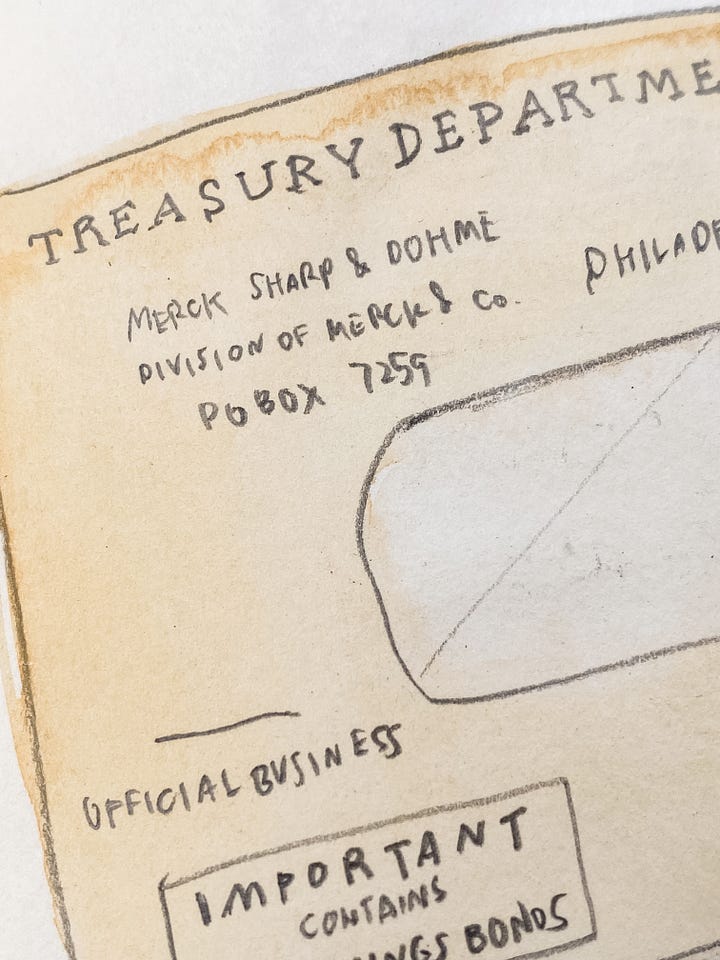 TREASURY DEPARTME
MERCK SHARP & DOHME
DIVISION OF MERCK & CO.
PO BOX 7259
PHILADE
OFFICIAL BUSINESS
IMPORTANT
CONTAINS
INGS BONDS